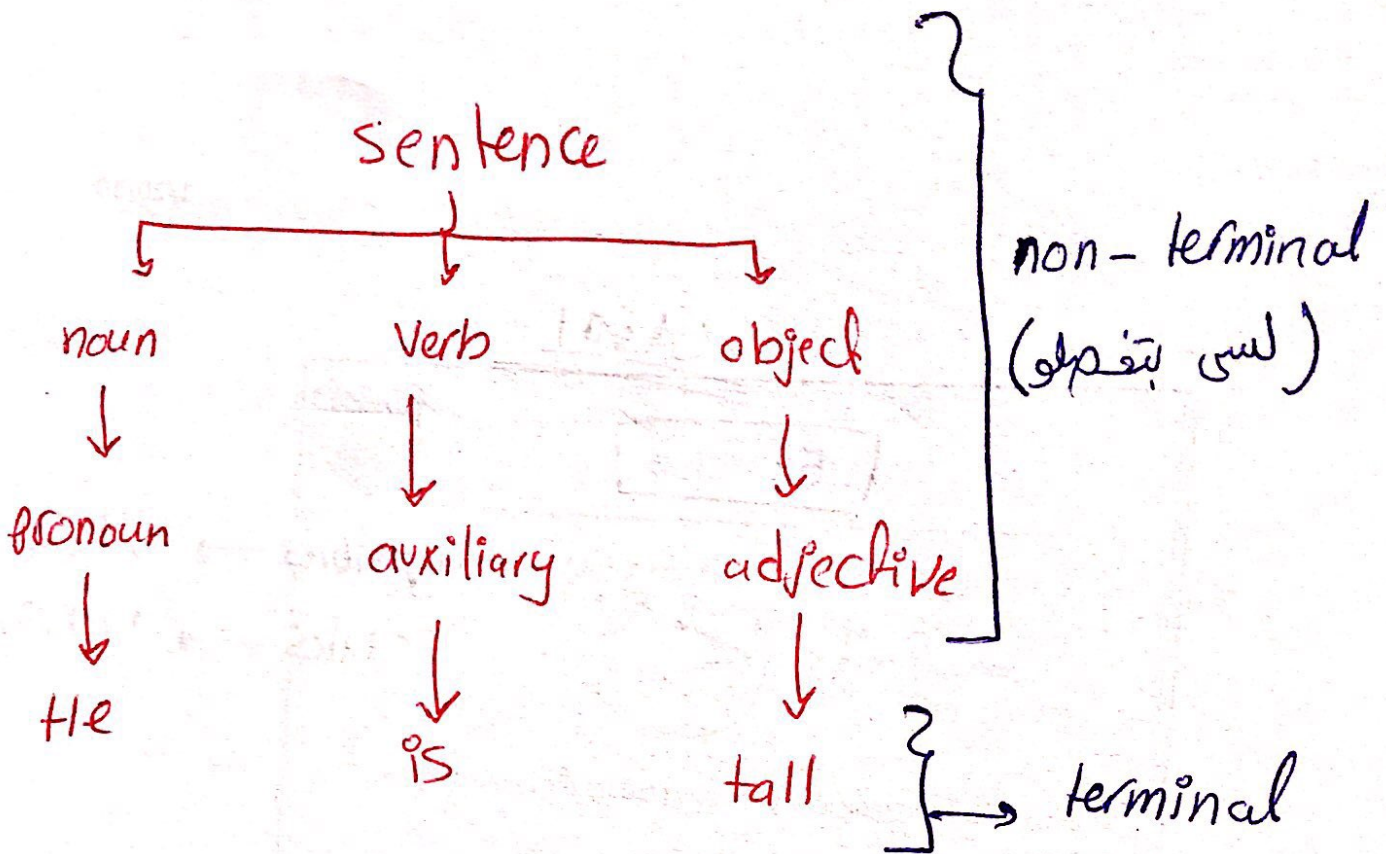 sentence
noun verb object
pronoun auxiliary adjective
He is tall
non-terminal
(لسى بتفصلو)
terminal